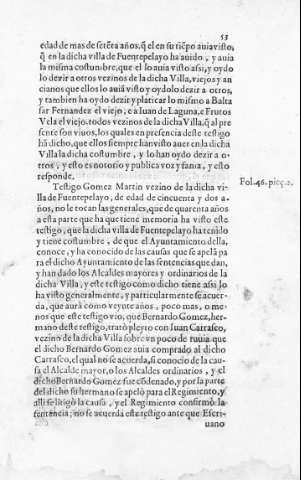 53
edad de mas de setēta años, q̃ el en su tiẽpo auia visto,
q̃ en la dicha villa de Fuentepelayo ha auido, y auia
la misma costumbre, que el lo auia visto assi, y oydo
lo dezir a otros vezinos de la dicha Villa, viejos y an
cianos que ellos lo auiã visto y oydolo dezir a otros,
y tambien ha oydo dezir y platicar lo mismo a Balta
sar Fernandez el viejo, e a Iuan de Laguna, e Frutos
Vela el viejo, todos vezinos de la dicha Villa, q̃ al pre
sente son viuos, los quales en presencia deste testigo
hã dicho, que ellos siempre han visto auer en la dicha
Villa la dicha costumbre, y lo han oydo dezir a o-
tros, y esto es notorio y publica voz y fama, y esto
responde.
Testigo Gomez Martin vezino de la dicha vi-
lla de Fuentepelayo, de edad de cincuenta y dos a-
ños, no le tocan las generales, que de quarenta años
a esta parte que ha que tiene memoria ha visto este
testigo, que la dicha villa de Fuentepelayo ha tenido
y tiene costumbre, de que el Ayuntamiento della,
conoce, y ha conocido de las causas que se apelã pa
ra el dicho Ayuntamiento de las sentencias que dan,
y han dado los Alcaldes mayores y ordinarios de la
dicha Villa, y este testigo como dicho tiene assi lo
ha visto generalmente, y particularmente se acuer-
da, que aurà como veynte años, poco mas, o me-
nos que este testigo vio, que Bernardo Gomez, her-
mano deste testigo, tratò pleyto con Iuan Carrasco,
vezino de la dicha Villa sobre vn poco de ruuia que
el dicho Bernardo Gomez auia comprado al dicho
Carrasco, el qual no se acuerda, si conocio de la cau-
sa el Alcalde mayor, o los Alcaldes ordinarios, y el
dicho Bernardo Gomez fue cõdenado, y por la parte
del dicho su hermano se apelò para el Regimiento, y
alli se litigò la causa, y el Regimiento confirmò la
sentencia, no se acuerda este testigo ante que Escri-
uano
Fol. 46. pieç. 2.